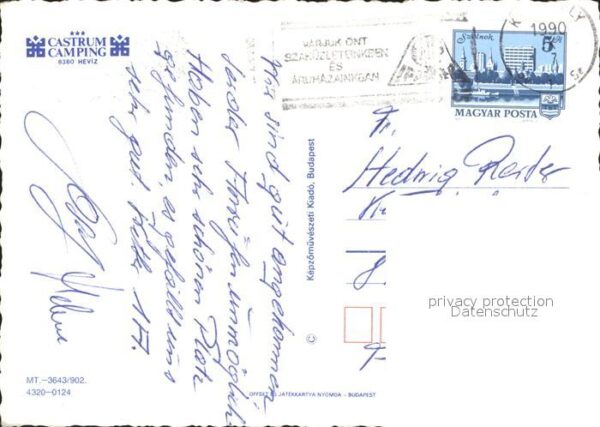 CASTRUM
CAMPING
8380 HÉVÍZ
VÁRJUK ÖNT
SZAKÜZLETEINKBEN
ÉS
ÁRUHÁZAINKBAN
1990
Szolnok
5 Ft
MAGYAR POSTA
Wir sind gut angekommen
leider Anrufen unmöglich
Haben sehr schönen Platz
gefunden, es gefällt uns
sehr gut. Bitte
Fr.
Hedwig
privacy protection
Datenschutz
Képzőművészeti Kiadó, Budapest
©
MT.–3643/902.
4320–0124
OFFSET ÉS JÁTÉKKÁRTYA NYOMDA – BUDAPEST